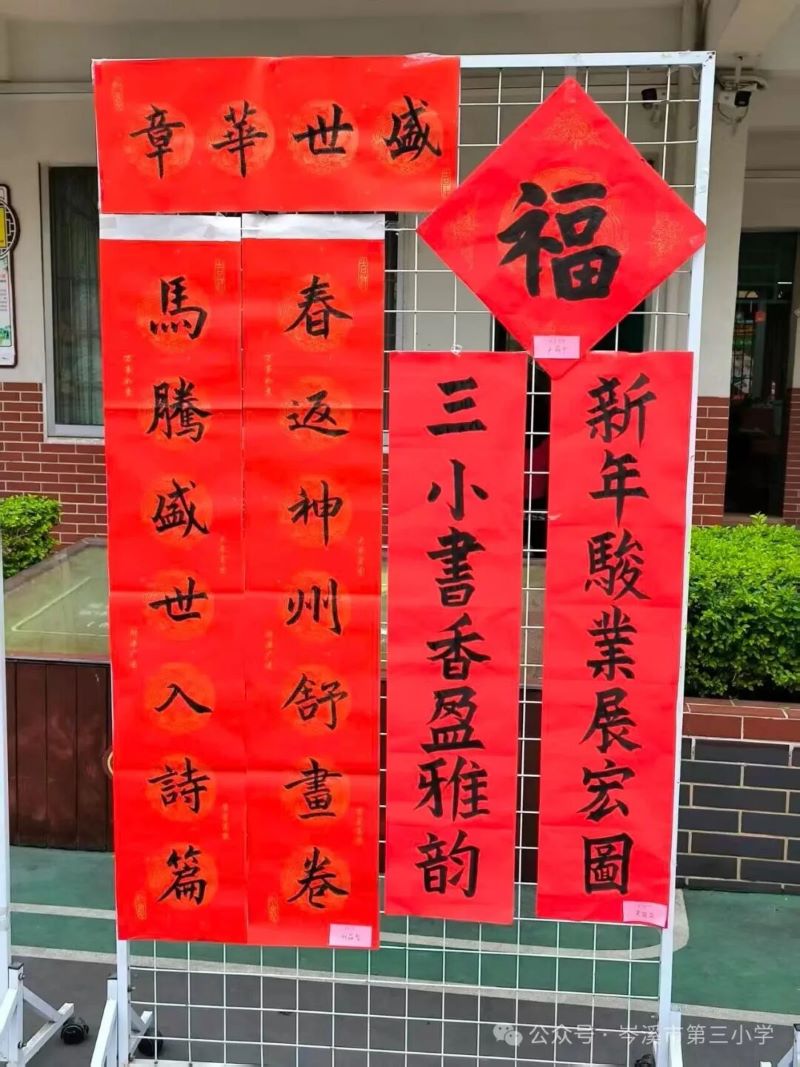 盛世華章
春返神州舒畫卷
馬騰盛世入詩篇
福
新年駿業展宏圖
三小書香盈雅韵
公众号·岑溪市第三小学